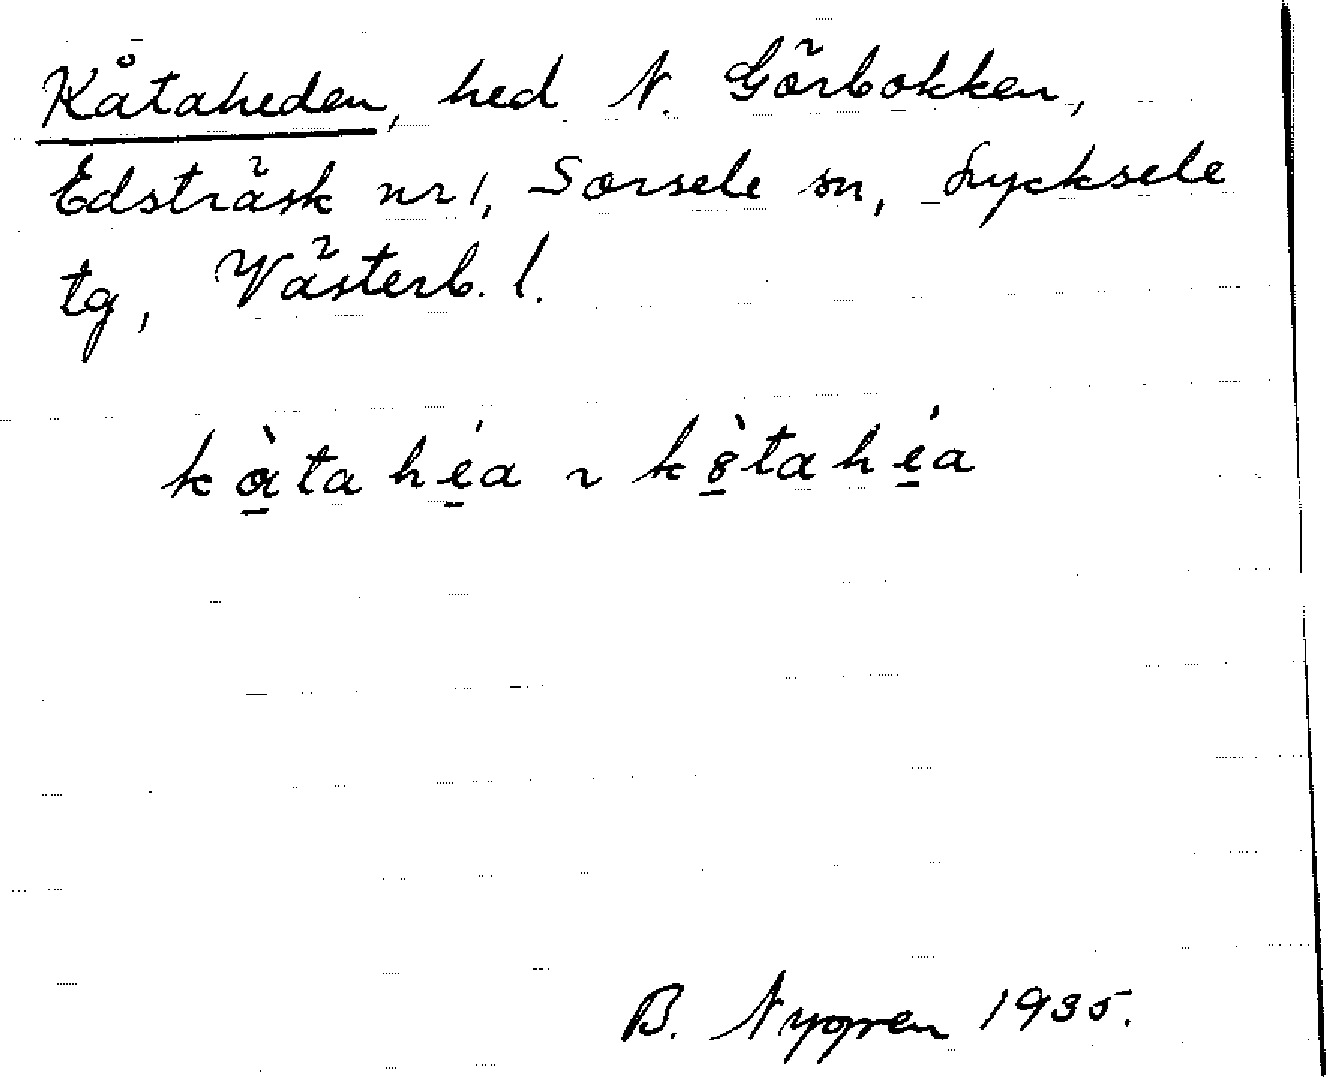 Kåtaheden, hed N. Görbokken,
Edsträsk nr 1, Sorsele sn, Lycksele
tg, Västerb. l.
kɑ̠̀ta hé̠a ~ kȣ̠̀tahé̠a
B. Nygren 1935.